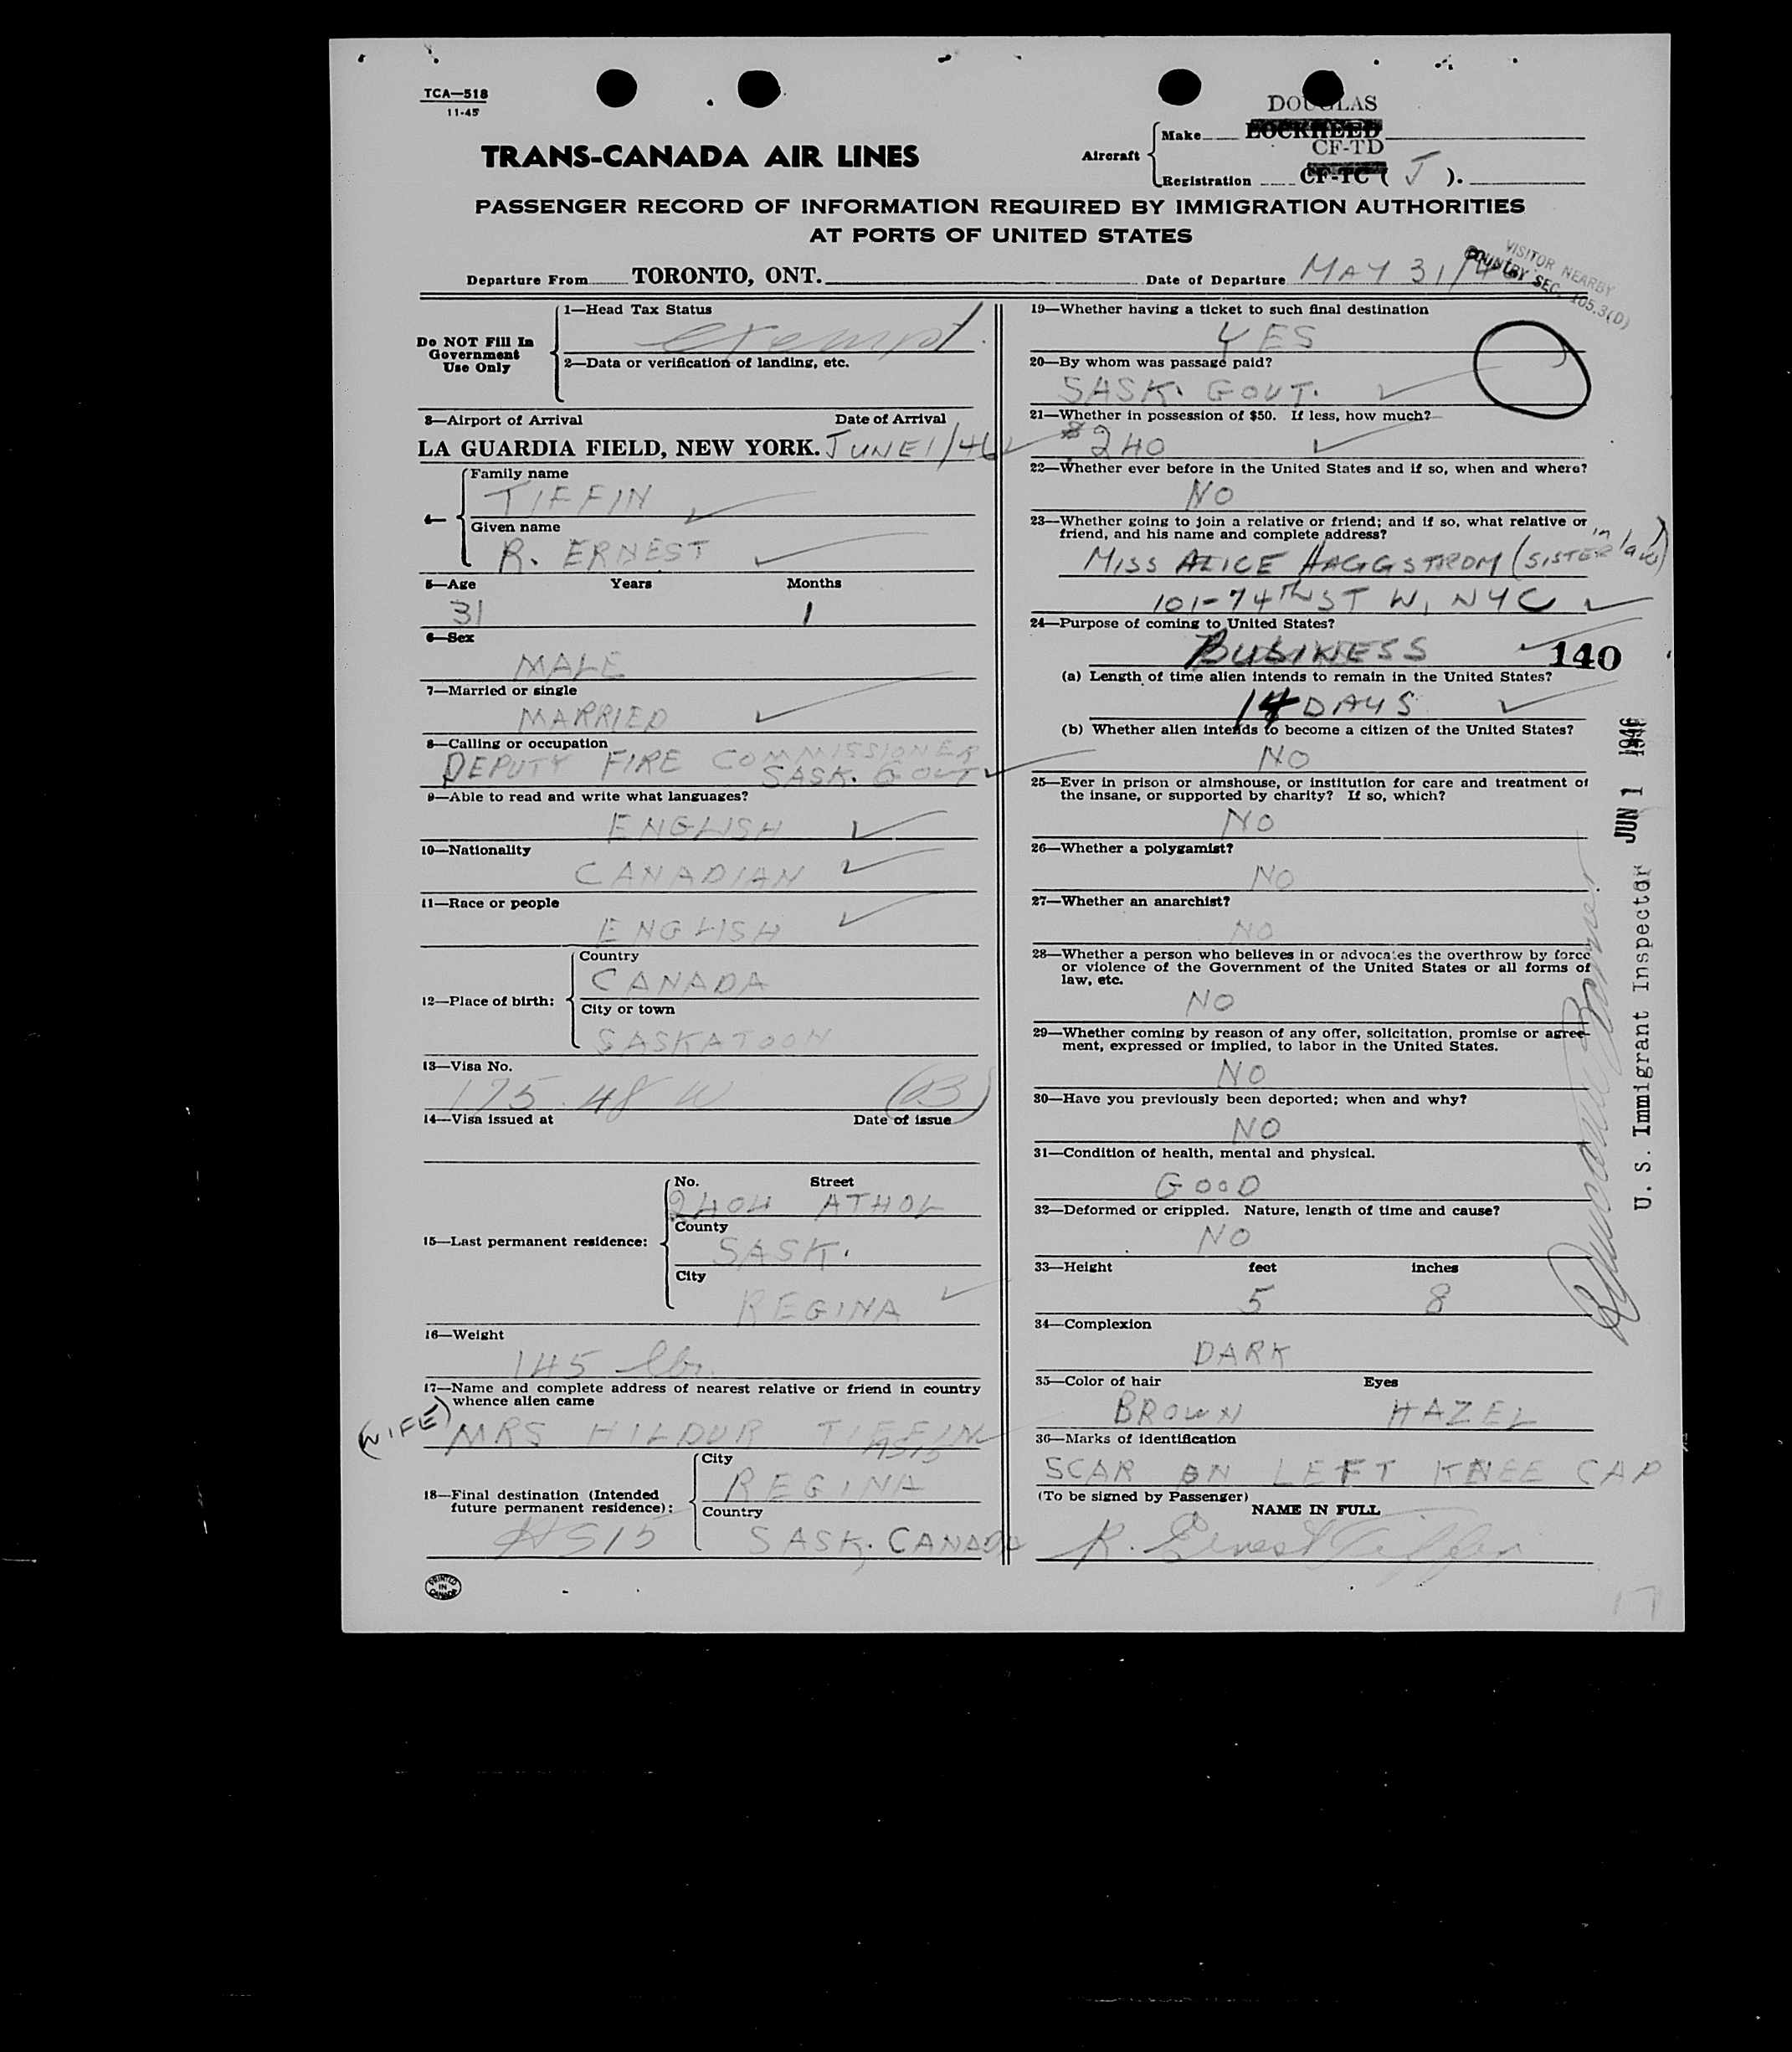 TCA—518
11-45
TRANS-CANADA AIR LINES
DOUGLAS
Aircraft
Make LOCKHEED
CF-TD
Registration CF-TC ( J ).
PASSENGER RECORD OF INFORMATION REQUIRED BY IMMIGRATION AUTHORITIES
AT PORTS OF UNITED STATES
VISITOR NEARBY
COUNTRY SEC. 105.3(D)
Departure From TORONTO, ONT.
Date of Departure MAY 31/46
Do NOT Fill In
Government
Use Only
1—Head Tax Status
exempt
2—Data or verification of landing, etc.
3—Airport of Arrival Date of Arrival
LA GUARDIA FIELD, NEW YORK. JUNE 1/46
4—
Family name
TIFFIN
Given name
R. ERNEST
5—Age Years Months
31 1
6—Sex
MALE
7—Married or single
MARRIED
8—Calling or occupation
DEPUTY FIRE COMMISSIONER
SASK. GOUT
9—Able to read and write what languages?
ENGLISH
10—Nationality
CANADIAN
11—Race or people
ENGLISH
12—Place of birth:
Country
CANADA
City or town
SASKATOON
13—Visa No.
175.48 W (B)
14—Visa issued at Date of issue
15—Last permanent residence:
No. Street
2404 ATHOL
County
SASK.
City
REGINA
16—Weight
145 lbs.
17—Name and complete address of nearest relative or friend in country
whence alien came
(WIFE) MRS HILDUR TIFFIN
18—Final destination (Intended
future permanent residence):
City
REGINA
Country
SASK. CANADA
PRINTED
IN
CANADA
19—Whether having a ticket to such final destination
YES
20—By whom was passage paid?
SASK. GOUT.
21—Whether in possession of $50. If less, how much?
$240
22—Whether ever before in the United States and if so, when and where?
NO
23—Whether going to join a relative or friend; and if so, what relative or
friend, and his name and complete address?
MISS ALICE HAGGSTROM (SISTER in law)
101-74TH ST W, NYC
24—Purpose of coming to United States?
BUSINESS
140
(a) Length of time alien intends to remain in the United States?
14 DAYS
(b) Whether alien intends to become a citizen of the United States?
NO
25—Ever in prison or almshouse, or institution for care and treatment of
the insane, or supported by charity? If so, which?
NO
26—Whether a polygamist?
NO
27—Whether an anarchist?
NO
28—Whether a person who believes in or advocates the overthrow by force
or violence of the Government of the United States or all forms of
law, etc.
NO
29—Whether coming by reason of any offer, solicitation, promise or agree-
ment, expressed or implied, to labor in the United States.
NO
30—Have you previously been deported; when and why?
NO
31—Condition of health, mental and physical.
GOOD
32—Deformed or crippled. Nature, length of time and cause?
NO
33—Height feet inches
5 8
34—Complexion
DARK
35—Color of hair Eyes
BROWN HAZEL
36—Marks of identification
SCAR ON LEFT KNEE CAP
(To be signed by Passenger)
NAME IN FULL
R. Ernest Tiffin
U. S. Immigrant Inspector JUN 1 1946
17